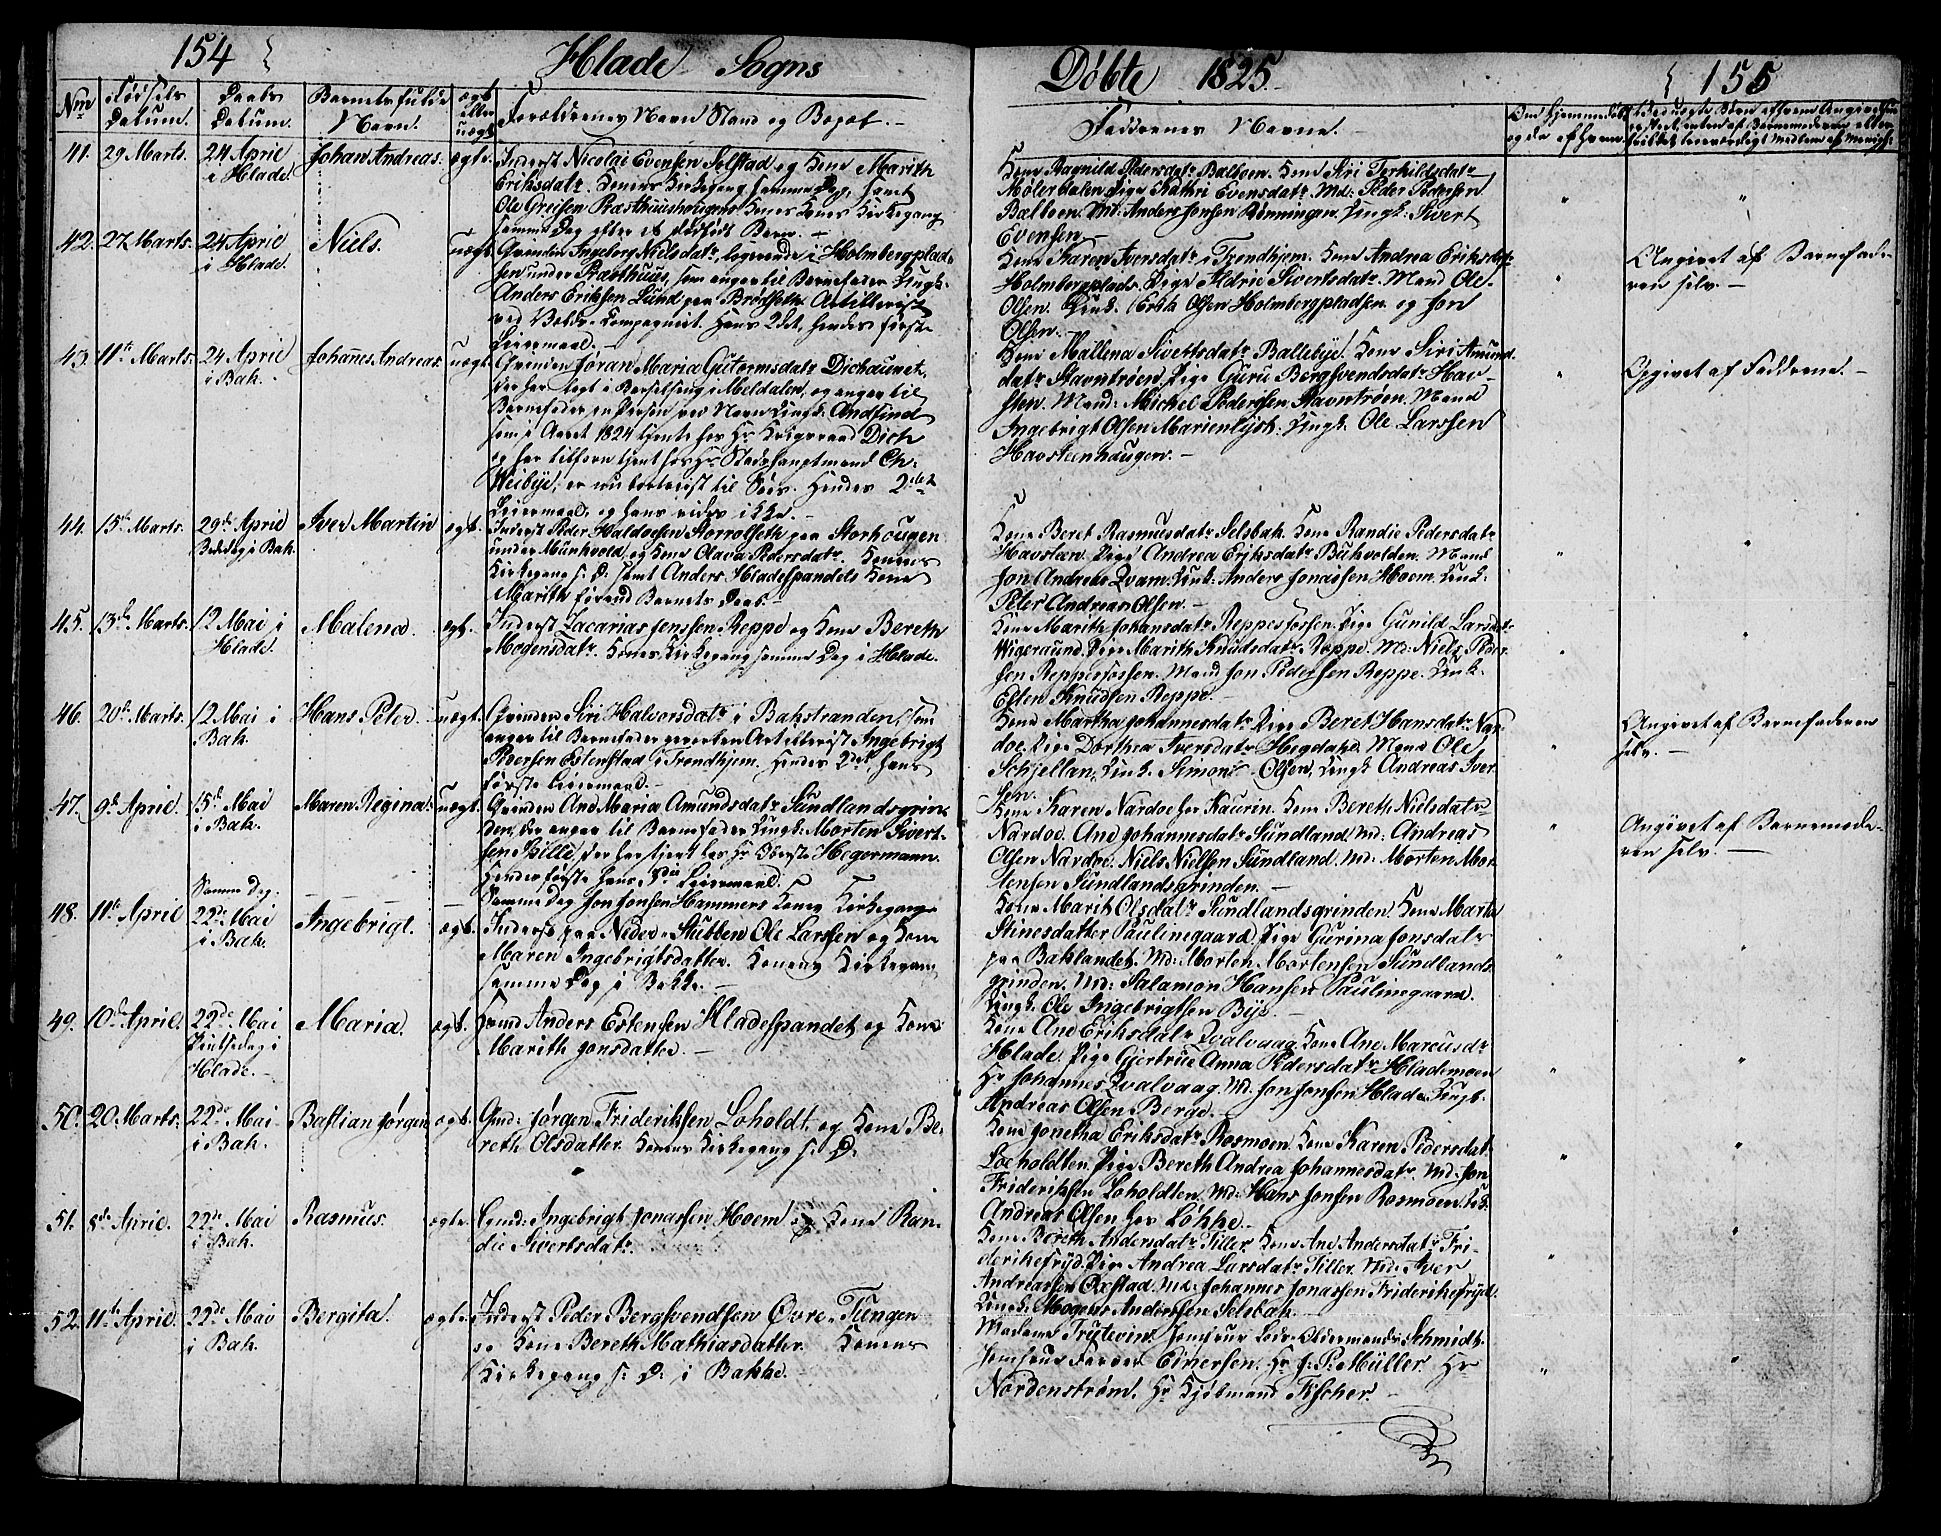 154 Hlade Sogns Døbte 1825. 155
Nrr Fødsels Datum. Daabs Datum. Barnets fulde Navn. ægte eller uægte Forældrenes Navn Stand og Bopæl. Faddrenes Navne.
41. 29 Marts. 24 April i Hlade. Johan Andreas. ægte.
Inderst Nicolai Evensen Selstad og Kone Marith
Eriksdatr. Konens Kirkegang samme Dag, samt
Ole Greisen Præsthuushougens Kones Kirkegang
samme Dag efter et dødfødt Barn.
Kone Ragnild Pedersdatr Balboen. Kone Siri Torkildsdatr
Møllerdalen Pige Kathri Evensdatr. Md: Peder Pedersen
Balboen. Md: Anders Jonsen Rønningen. Ungk: Sivert
Evensen.
42. 27 Marts. 24 April i Hlade. Niels. uægte
Qvinden Ingeborg Nielsdatr, logerende i Holmbergplad-
sen under Præsthuus, som angav til Barnefader Ungk.
Anders Eriksen Lund paa Brødseth. Artillerist
ved Compagniet. Hans 2det, hendes første
Leiermaal.
Kone Karen Iversdatr Trondhjem. Kone Andrea Eriksdatr
Holmbergplads. Pige Aldrie Sivertsdatr. Mand Ole
Olsen. Ungk. Erik Olsen Holmbergpladsen og Jon
Olsen.
Angivet af Barnefade-
ren selv.
43. 11te Marts. 24 April i Bak. Johannes Andreas. uægte.
Qvinden Jøran Maria Gutormsdatr Dichaunet,
der har lagt i Barselseng i Meldalen, og angav til
Barnefader en Person ved Navn Ungk. Andfind
som i Aaret 1824 tjente hos Hr Krigsraad Dich
og har tilforn tjent hos Hr Stadshauptmand Ch.
Weibye, er nu bortreist til Søes. Hendes 2det
Leiermaal og hans vides ikke.
Kone Mallena Sivertsdatr Ballebye. Kone Siri Amund
datr Stavntrøen. Pige Guru Bergsvendsdatr Hav-
sten. Mand: Michel Pedersen Stavntrøen. Mand
Ingebrigt Olsen Marienlyst. Ungk. Ole Larssen
Havsteenhaugen.
Opgivet af Faddrene.
44. 15de Marts. 29de April Bededag i Bak. Iver Martin ægt.
Inderst Peder Haldoesen Storrolseth paa Storhougen
under Munkvold, og Kone Olava Pedersdatr. Konens
Kirkegang s: D: samt Anders Hladespandets Kone
Marith forend Barnets Daab.
Kone Beret Rasmusdatr Selsbak. Kone Randie Pedersdatr
Havsteen. Pige Andrea Eriksdatr Bukvolden. Mand
Jon Andreas Qvam. Ungk: Anders Jonassen Hoem. Ungk:
Peter Andreas Olsen.
45. 13de Marts. 12 Mai i Hlade. Malena. ægt.
Inderst Zacarias Jenssen Reppe og Kone Bereth
Mogensdatr. Konens Kirkegang samme Dag i Hlade.
Kone Marith Johansdatr Reppesfossen. Pige Gunild Larsdatr
Wigeraund. Pige Marith Knudsdatr Reppe. Md: Niels Peder-
sen Reppesfossen. Mand Jon Pedersen Reppe. Ungk.
Esten Knudsen Reppe.
46. 20de Marts. 12 Mai i Bak. Hans Peter. uægt.
Qvinden Siri Halvorsdatr i Bakstranden, som
angav til Barnefader Artillerist Ingebrigt
Pedersen Estenstad i Trondhjem. Hendes 2det, hans
første Leiermaal.
Kone Martha Johannesdatr Pige Beret Hansdatr Nar-
doe. Pige Dorthea Iversdatr Hegdahl. Mand Ole
Schjellan, Ungk. Simon Olsen, Ungk Andreas Iver
sen.
Angivet af Barnefaderen
selv.
47. 9de April. 15de Mai i Bak. Maren Regina. uægt.
Qvinden Ane Maria Amundsdatr Sundlandsgrin-
den, der angav til Barnefader Ungk. Morten Sivert-
sen Bille, der har tjent hos Hr Oberste Hegermann.
Hendes første hans 5te Leiermaal.
Samme Dag
Samme Dag Jon Jonsen Hammers Kones Kirkegang
Kone Karen Nardoe for Kaurin. Kone Bereth Nielsdatr
Nardoe. Ane Johannesdatr Sundland. Md: Andreas
Olsen Nardoe. Niels Nielsen Sundland. Md: Morten Mor-
tensen Sundlandsgrinden.
Angivet af Barnemode-
ren selv.
48. 11te April 22de Mai i Bak. Ingebrigt. ægt.
Inderst paa Nedre-Stubben Ole Larssen og Kone
Maren Ingebrigtsdatter. Konens Kirkegang
samme Dag i Bakke.
Kone Marit Olsdatr Sundlandsgrinden. Kone Marta
Stinesdatter Paulinegaard. Pige Gurina Jonsdatr
paa Baklandet. Md: Morten Mortensen Sundlands-
grinden. Md: Salamon Hansen Paulinegaard.
Ungk. Ole Ingebrigtsen Bye.
49. 10de April. 22de Mai Pintsedag i Hlade. Maria. ægt.
Huusmd Anders Estensen Hladespandet og Kone
Marith Jonsdatter.
Kone Ane Eriksdatr Qvalvaag. Kone Ane Marcusdr
Hlade. Pige Gjertrue Anna Pedersdatr Hlademoen
Hr Johannes Qvalvaag. Md. Jon Jonsen Hlade. Ungk.
Andreas Olsen Berge.
50. 20 Marts. 22de Mai i Bak. Bastian Jørgen ægt.
Gmd: Jørgen Frideriksen Loholdt og Kone Be-
reth Olsdatter. Konens Kirkegang s. D.
Kone Jonetha Eriksdatr Rosmoen. Kone Karen Pedersdatr
Loeholdten. Pige Bereth Andrea Johannesdatr. Md: Jon
Frideriksen Loholdten. Md: Hans Jonsen Rosmoen. Uk:
Andreas Olsen hos Løkke.
51. 8de April. 22de Mai i Bak. Rasmus. ægte.
Gmd: Ingebrigt Jonassen Hoem og Kone Ran-
die Sivertsdatr.
Kone Bereth Andersdatr Tiller. Kone Ane Andersdatr Fri-
derikefryd. Pige Andrea Larsdatr Tiller. Md: Iver
Andreassen Oxstad. Md: Johannes Jonassen Friderikefryd.
Ungk. Mogens Anderssen Selsbak.
52. 11te April. 22de Mai i Bak. Bergita. ægte.
Inderst Peder Bergsvendsen Øvre-Tungen
og Kone Bereth Mathiasdatter. Konens
Kirkegang s: D: i Bakke.
Madame Trytevin. Jomfrue Oldermand Schmidt.
Jomfrue Einersen. Hr J: P: Müller Hr
Nordenstrøm. Hr Kjøbmand Fischer.